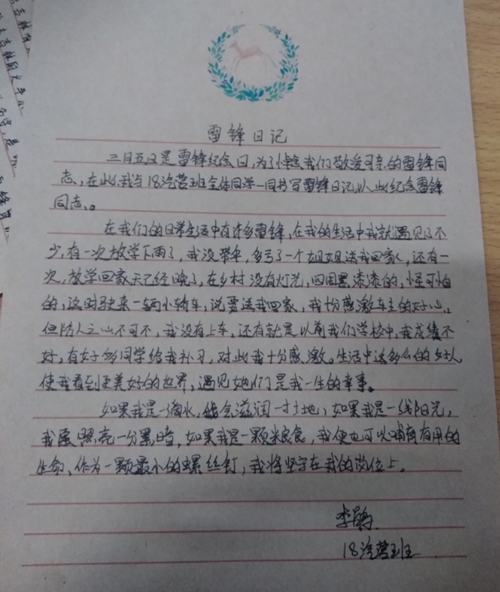 雷锋日记
三月五日是雷锋纪念日,为了悼念我们敬爱可亲的雷锋同
志,在此我与18汽营班全体同学一同书写雷锋日记以此纪念雷锋
同志。
在我们的日常生活中有许多雷锋,在我的生活中我就遇见了不
少,有一次放学下雨了,我没带伞,多亏了一个姐姐送我回家,还有一
次,放学回家天已经晚了,在乡村没有灯光,四周黑漆漆的,怪可怕
的,这时驶来一辆小轿车,说要送我回家,我十分感激车主的好心,
但防人之心不可不,我没有上车,还有就是以前我们学校中,我成绩不
好,有好多同学给我补习,对此我十分感激。生活中这多么的好人
使我看到更美好的世界,遇见她们是我一生的幸事。
如果我是一滴水,会滋润一寸土地;如果我是一线阳光,
我照亮一分黑暗,如果我是一颗粮食,我便也可以哺育有用的
生命、作为一颗最小的螺丝钉,我将坚守在我的岗位上。
李
18汽营班